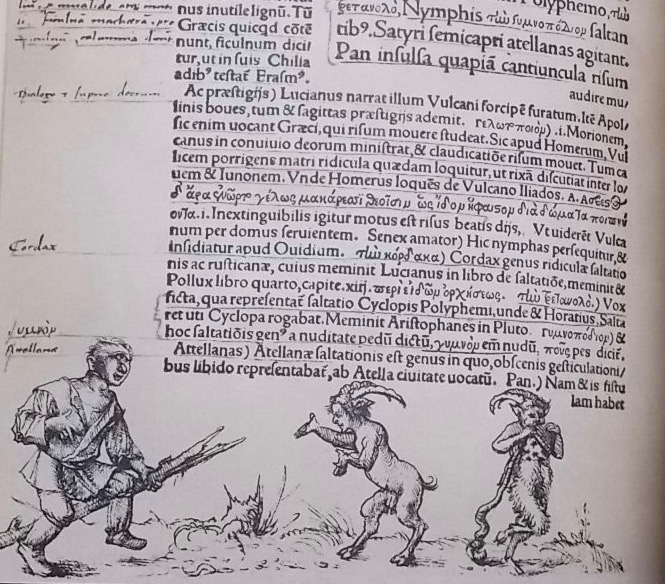 nus inutile lignũ. Tũ
Græcis quicqd cõtẽ
nunt, ficulnum dici
tur, ut in ſuis Chilia
adib⁹ teſtat̃ Eraſm⁹.
olyphemo, τὼ
Nymphis τὼ γυμνοπόδιον ſaltan
tib⁹. Satyri ſemicapri atellanas agitant.
Pan inſulſa quapiã cantiuncula riſum
audire mu/
Ac præſtigijs) Lucianus narrat illum Vulcani forcipẽ furatum. Itẽ Apol/
linis boues, tum & ſagittas præſtigijs ademit. γελωτοποιὸν) .i. Morionem,
ſic enim uocant Græci, qui riſum mouere ſtudeat. Sic apud Homerum, Vul
canus in conuiuio deorum miniſtrat, & claudicatiõe riſum mouet. Tum ca
licem porrigens matri ridicula quædam loquitur, ut rixã diſcutiat inter Io/
uem & Iunonem. Vnde Homerus loquẽs de Vulcano Iliados. A. Ἄσβεσ
δ' ἄρα ἐνῶρτο γέλως μακάρεσσι θεοῖσιν ὡς ἴδον ἥφαιστον διὰ δώματα ποιπνύ
οντα .i. Inextinguibilis igitur motus eſt riſus beatis dijs, Vt uiderẽt Vulca
num per domus ſeruientem. Senex amator) Hic nymphas perſequitur, &
inſidiatur apud Ouidium. τὼ κόρδακα) Cordax genus ridiculæ ſaltatio
nis ac ruſticanæ, cuius meminit Lucianus in libro de ſaltatiõe, meminit &
Pollux libro quarto, capite. xiij. περὶ εἰδῶν ὀρχήσεως. τὼ ῥετανολό.) Vox
ficta, qua repreſentat̃ ſaltatio Cyclopis Polyphemi, unde & Horatius, Salta
ret uti Cyclopa rogabat. Meminit Ariſtophanes in Pluto. γυμνοπόδιον) &
hoc ſaltatiõis gen⁹ a nuditate pedũ dictũ, γυμνὸν em̃ nudũ, ποῦς pes dicit̃.
Attellanas) Atellanæ ſaltationis eſt genus in quo, obſcenis geſticulationi/
bus libido repreſentabat̃, ab Atella ciuitate uocatũ. Pan.) Nam & is fiſtu
lam habet
Cordax
Atellanæ